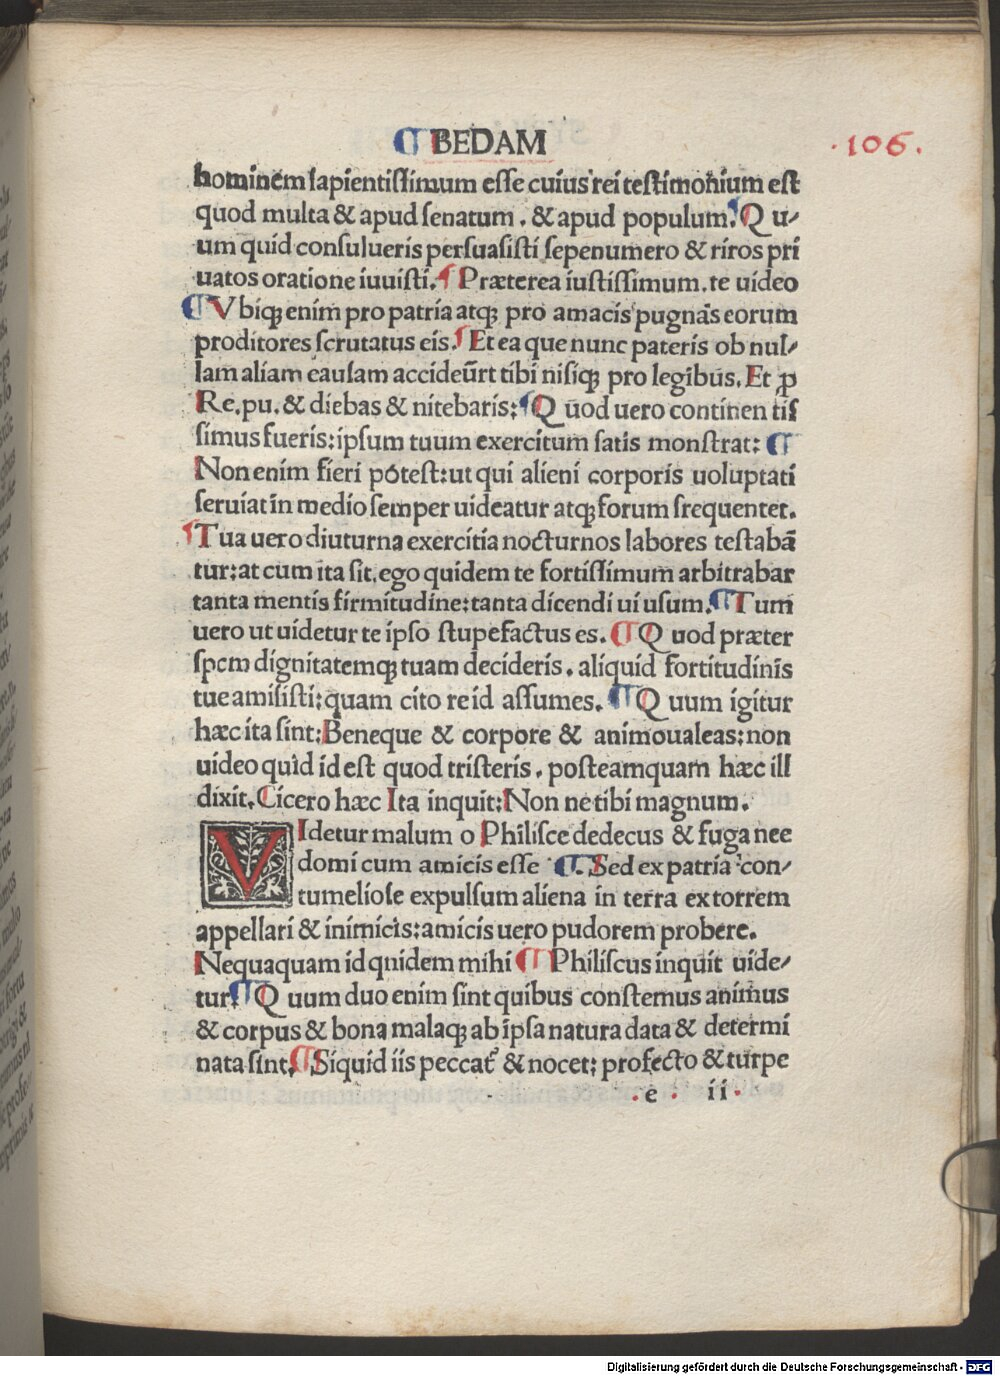 ¶ BEDAM
.106.
hominem sapientissimum esse cuius rei testimonium est
quod multa & apud senatum . & apud populum. ¶ Q u-
um quid consulueris persuasisti sepenumero & riros pri
uatos oratione iuuisti. ¶ Præterea iustissimum . te uideo
¶ Vbiq; enim pro patria atq; pro amacis pugnās eorum
proditores scrutatus eis. ¶ Et ea que nunc pateris ob nul-
lam aliam causam accideūrt tibi nisiq; pro legibus. Et ꝓ
Re. pu. & diebas & nitebaris: ¶ Q uod uero continen tis
simus fueris: ipsum tuum exercitum satis monstrat: ¶
Non enim fieri potest: ut qui alieni corporis uoluptati
seruiat in medio semper uideatur atq; forum frequentet.
¶ Tua uero diuturna exercitia nocturnos labores testabā
tur: at cum ita sit. ego quidem te fortissimum arbitrabar
tanta mentis firmitudine: tanta dicendi ui usum. ¶ Tum
uero ut uidetur te ipso stupefactus es. ¶ Q uod præter
spem dignitatemq; tuam decideris . aliquid fortitudinis
tue amisisti: quam cito re id assumes. ¶ Q uum igitur
hæc ita sint: Beneque & corpore & animo ualeas: non
uideo quid id est quod tristeris . posteamquam hæc ill
dixit. Cicero hæc Ita inquit: Non ne tibi magnum.
VIdetur malum o Philisce dedecus & fuga nee
domi cum amicis esse ¶. Sed ex patria con-
tumeliose expulsum aliena in terra extorrem
appellari & inimicis: amicis uero pudorem probere.
Nequaquam id qnidem mihi ¶ Philiscus inquit uide-
tur. ¶ Q uum duo enim sint quibus constemus animus
& corpus & bona malaq; ab ipsa natura data & determi
nata sint. ¶ Siquid iis peccat̉ & nocet: profecto & turpe
. e . ii .
Digitalisierung gefördert durch die Deutsche Forschungsgemeinschaft - DFG